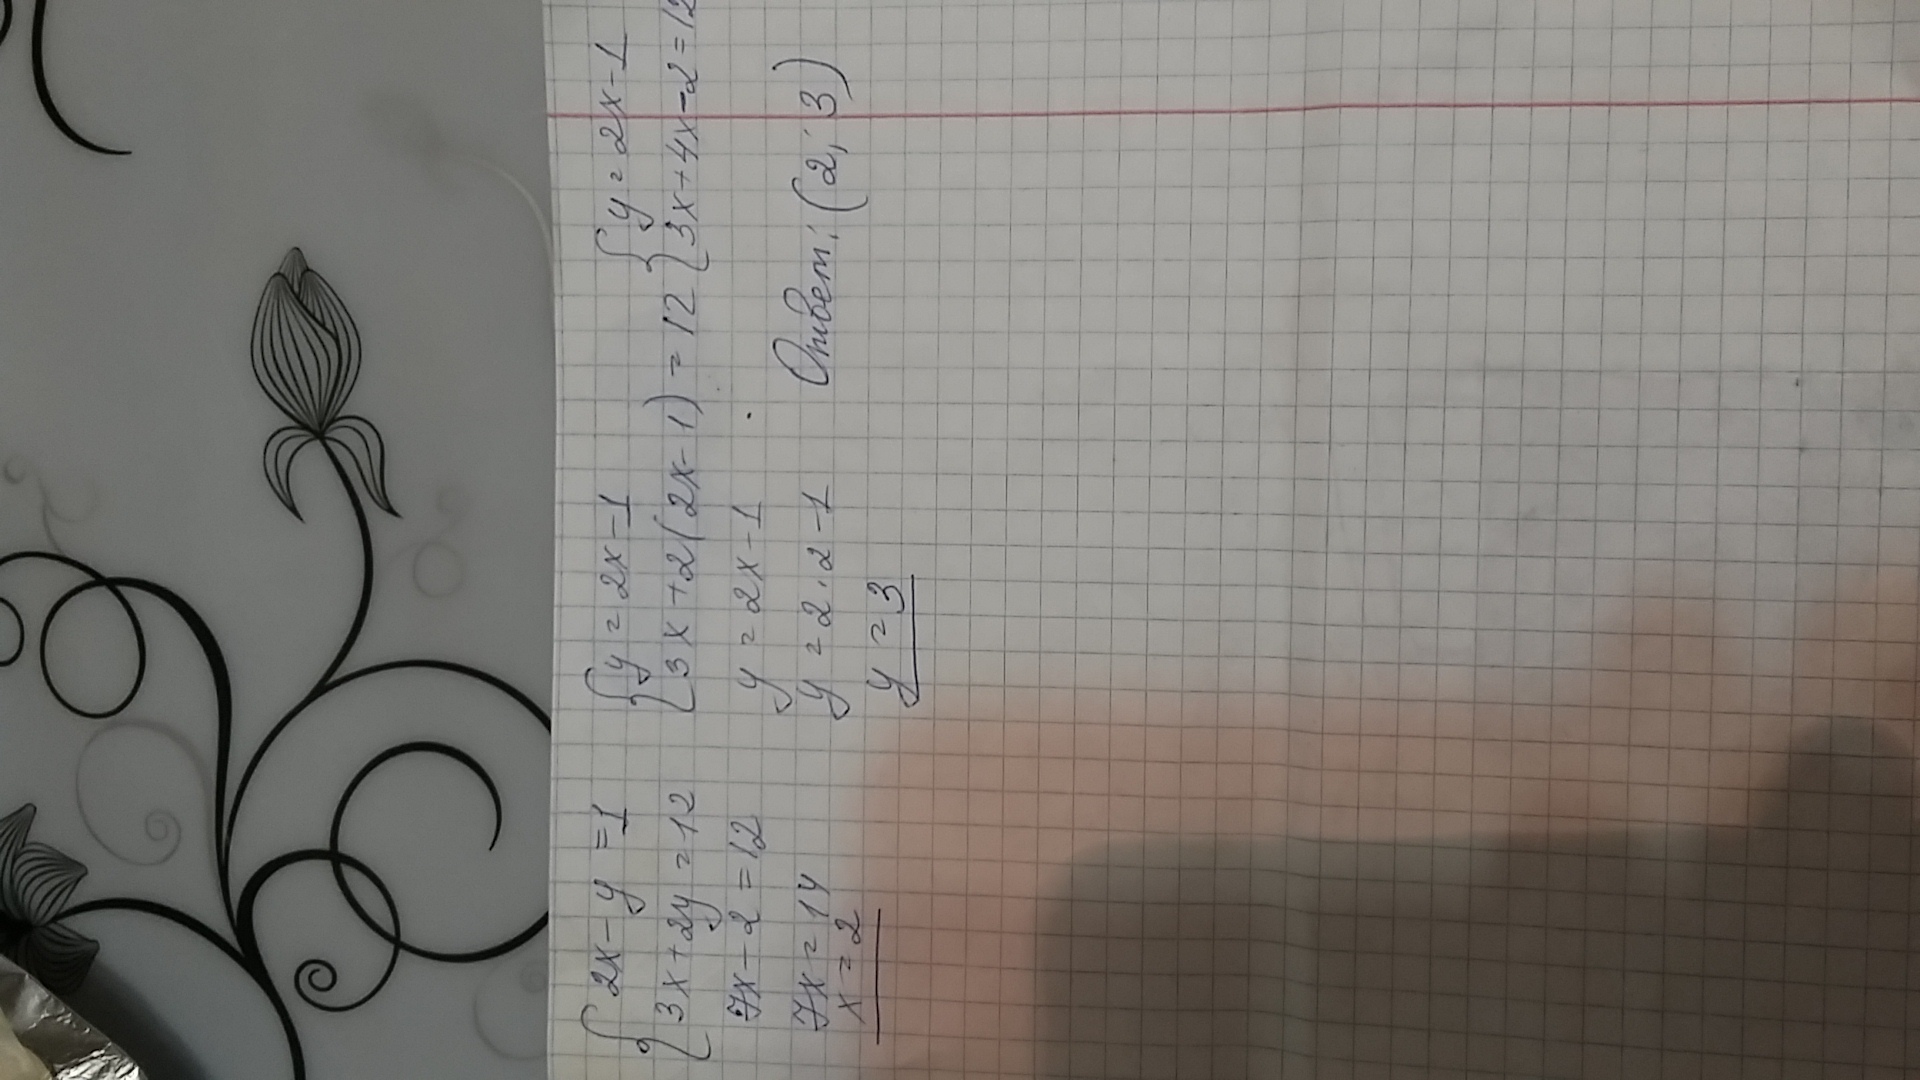 { 2x - y = 1 { y = 2x - 1 { y = 2x - 1
{ 3x + 2y = 12 { 3x + 2(2x - 1) = 12 { 3x + 4x - 2 = 12
7x - 2 = 12 y = 2x - 1
7x = 14 y = 2 · 2 - 1 Ответ: (2; 3)
x = 2 y = 3